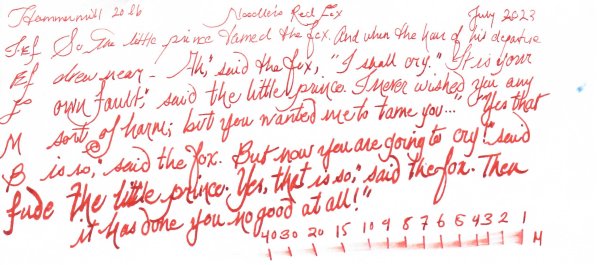 Hammermill 20 lb Noodler's Red Fox July 2023
J.Ef So the little prince tamed the fox. And when the hour of his departure
Ef drew near - "Ah," said the fox, "I shall cry." "It is your
F own fault," said the little prince. I never wished you any
M sort of harm; but you wanted me to tame you..." "Yes that
B is so," said the fox. But now you are going to cry!" said
fude the little prince. Yes, that is so," said the fox. Then
it has done you no good at all!"
40 30 20 15 10 9 8 7 6 5 4 3 2 1 M